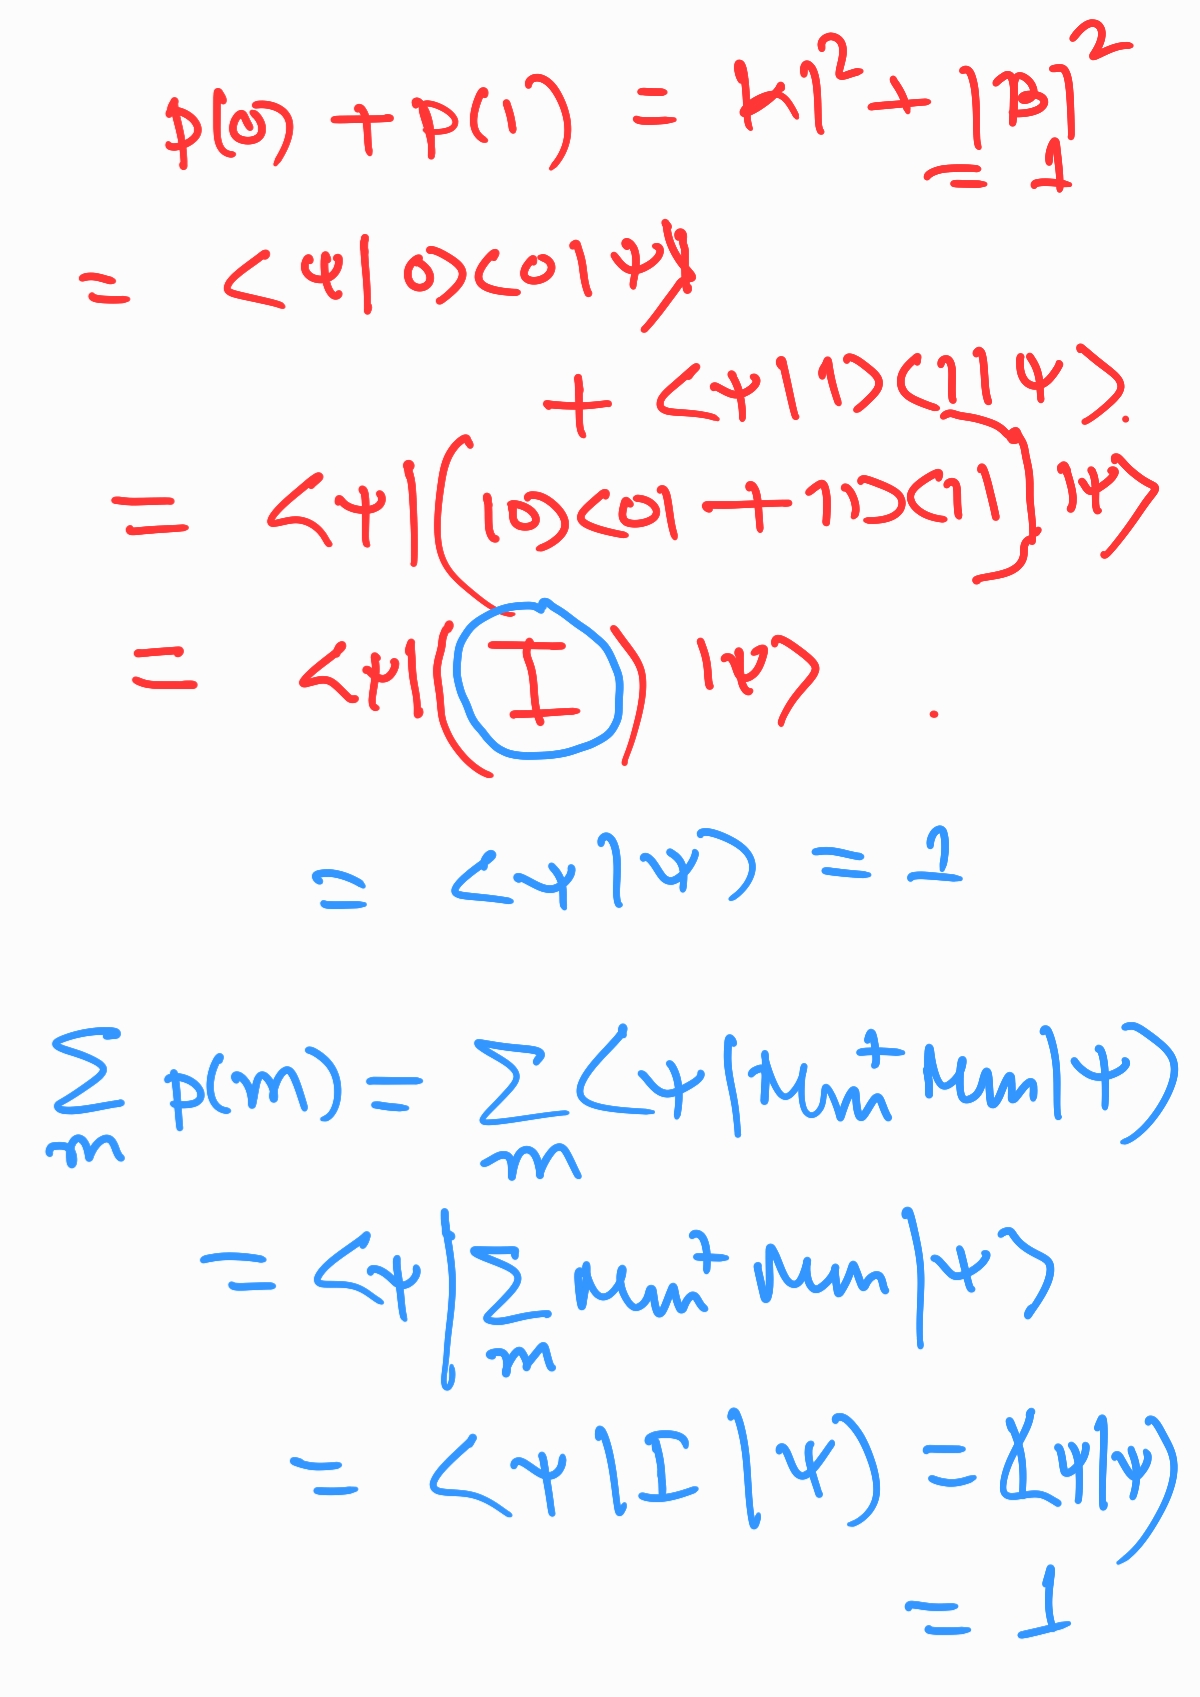 p(0) + p(1) = |α|² + |β|²
= 1
= <ψ|0><0|ψ>
+ <ψ|1><1|ψ>.
= <ψ|(|0><0| + |1><1|)|ψ>
= <ψ|(I)|ψ> .
= <ψ|ψ> = 1
∑ₘ p(m) = ∑ₘ <ψ|Mₘ⁺ Mₘ|ψ>
= <ψ|∑ₘ Mₘ⁺ Mₘ|ψ>
= <ψ|I|ψ> = <ψ|ψ>
= 1